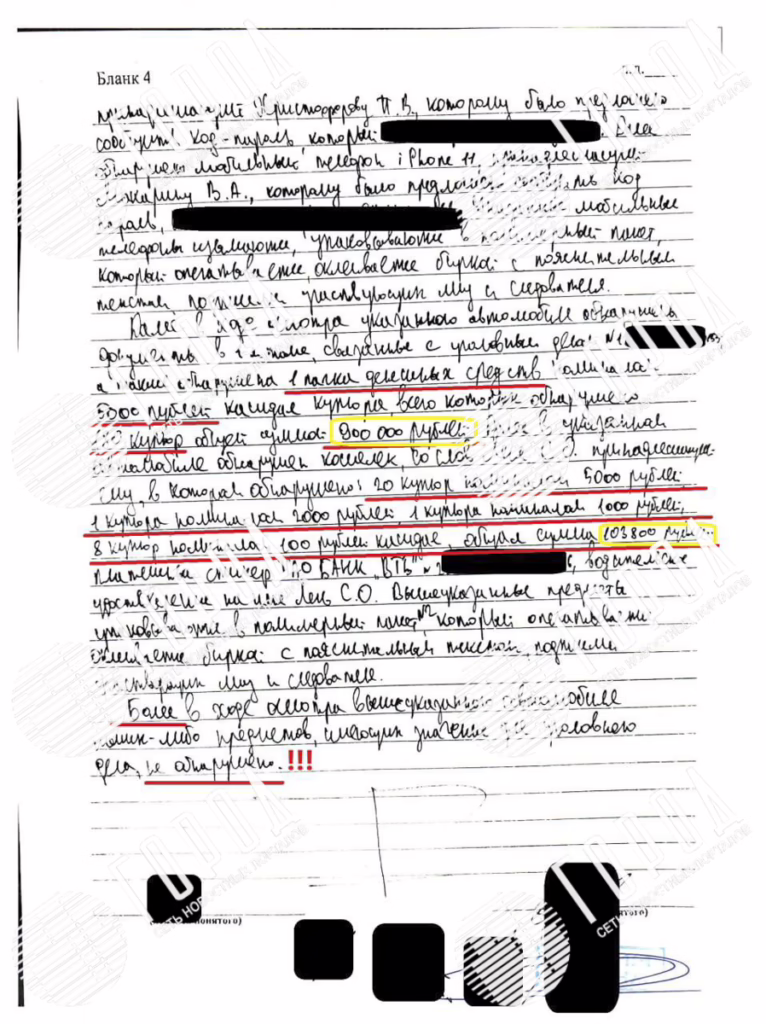 Бланк 4
принадлежащие Христофорову П.В., которому было предложено
сообщить код-пароль, который
обнаружен мобильный телефон iPhone 11, принадлежащий
В.А., которому было предложено сообщить код
пароль, мобильные
телефоны изымаются, упаковываются в полимерный пакет,
который опечатывается, оклеивается биркой с пояснительным
текстом, подписями участвующих лиц и следователя.
Далее в ходе осмотра указанного автомобиля обнаружены
документы в 1-м томе, связанные с уголовным делом №
а также обнаружена 1 пачка денежных средств номиналом
5000 рублей каждая купюра, всего которых обнаружено
купюр общей суммой 900 000 рублей. Также в указанном
автомобиле обнаружен кошелек, со слов С.О. принадлежащий
ему, в котором обнаружено: 20 купюр номиналом 5000 рублей,
1 купюра номиналом 2000 рублей, 1 купюра номиналом 1000 рублей,
8 купюр номиналом 100 рублей каждая, общая сумма 103800 рублей
БАНК „ВТБ" № водительское
удостоверение на имя Лень С.О. Вышеуказанные предметы
упаковываются в полимерный пакет №2, который опечатывается
оклеивается биркой с пояснительным текстом, подписями
участвующих лиц и следователя.
Более в ходе осмотра вышеуказанного автомобиля
каких-либо предметов, имеющих значение для уголовного
дела, не обнаружено. !!!
ГОРОД
СЕТЬ НОВОСТНЫХ ПОРТАЛОВ